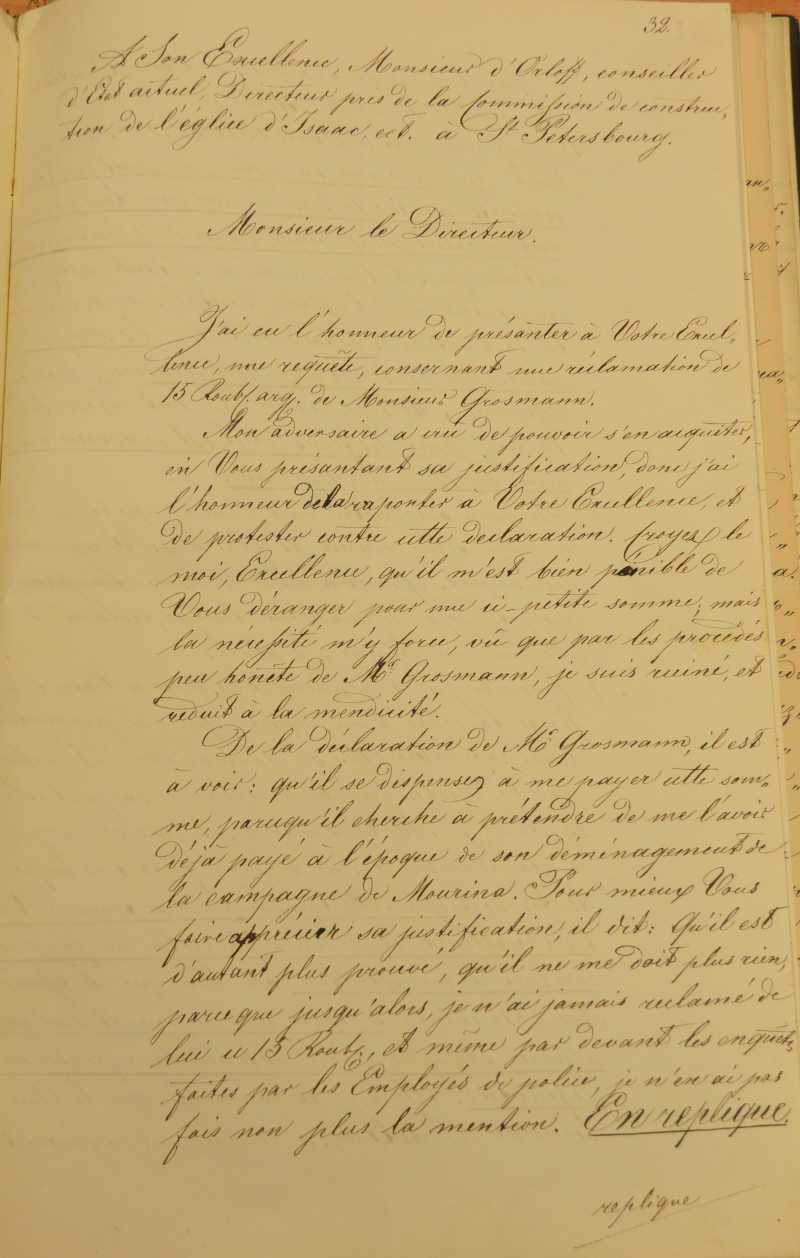 32.
A Son Excellence, Monsieur d'Orloff, conseiller
d'Etat actuel, Directeur près de la Commission de construc„
tion de l'église d'Isaac, ect. à St Petersbourg.
Monsieur le Directeur.
J'ai eu l'honneur de présanter à Votre Excel„
lence, une requête, consernant une réclamation de
15 Roub. arg. de Monsieur Grosmann.
Mon adversaire a crû de pouvoir s'en acquiter,
en Vous présantant sa justification, donc j'ai
l'honneur de la raporter à Votre Excellence, et
de protester contre cette declaration. Croyez le
moi, Excellence, qu'il m'est bien pénible de
Vous déranger pour une si-petite somme; mais
la nécessité m'y force, vû que par les procédés
peu honête de Mr Grosmann, je suis ruiné, et
reduit à la mendicité.
De la déclaration de Mr Grosmann, il est
à voir: qu'il se dispense, à me payer cette som„
me, parcequ'il cherche à prétendre de me l'avoir
déjà payé à l'époque de son déménagement de
la campagne de Mourina. Pour mieux Vous
faire apprécier sa justification, il dit: Qu'il est
d'autant plus prouvé, qu'il ne me doit plus rien,
parceque jusqu'alors, je n'ai jamais reclamé de
lui ce 15 Roub., et même par devant les enquêt„
faites par les Employés de police, je n'en ai pas
fais non plus la mention. En replique.
replique